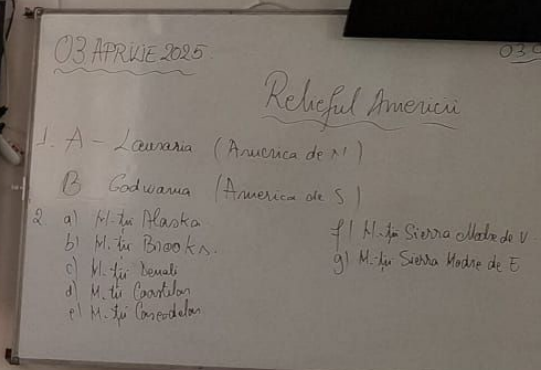 03 APRILIE 2025
03.0
Relieful Americii
1. A - Lauraria (America de N)
B Godwana (America de S)
2. a) M-ții Alaska
b) M-ții Brooks.
c) M-ții Denali
d) M-ții Coastelor
e) M-ții Cascadelor
f) M-ții Sierra Madre de V
g) M-ții Sierra Madre de E